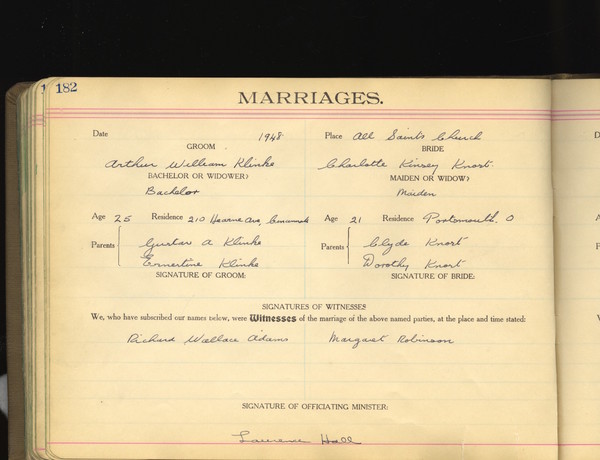 182
MARRIAGES.
Date 1948 Place All Saints Church
GROOM BRIDE
Arthur William Klinke Charlotte Kinsey Knost.
BACHELOR OR WIDOWER? MAIDEN OR WIDOW?
Bachelor Maiden
Age 25 Residence 210 Ave, Age 21 Residence Portsmouth. O
Parents Gustav A Klinke Parents Clyde Knost
Ernestine Klinke Dorothy Knost
SIGNATURE OF GROOM: SIGNATURE OF BRIDE:
SIGNATURES OF WITNESSES
We, who have subscribed our names below, were Witnesses of the marriage of the above named parties, at the place and time stated:
Richard Wallace Adams Margaret Robinson
SIGNATURE OF OFFICIATING MINISTER:
Laurence Hall